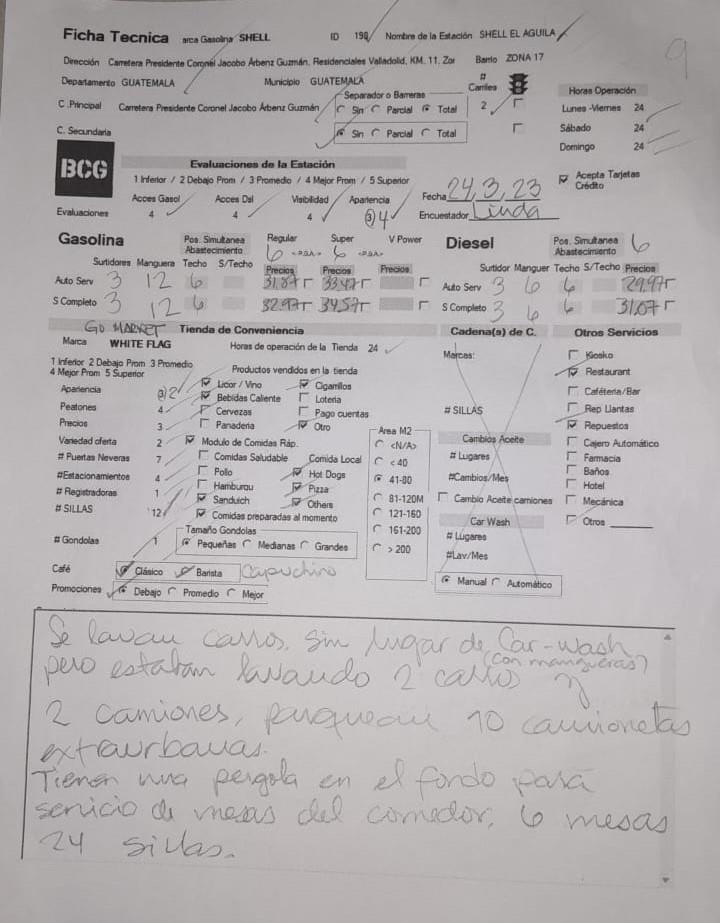 Ficha Tecnica arca Gasolina SHELL ID 190 Nombre de la Estación SHELL EL AGUILA
9
Dirección Carretera Presidente Coronel Jacobo Árbenz Guzmán, Residenciales Valladolid, KM. 11, Zor Barrio ZONA 17
Departamento GUATEMALA Municipio GUATEMALA # Carriles Horas Operación
Separador o Barreras
C .Principal Carretera Presidente Coronel Jacobo Árbenz Guzmán Sin Parcial Total 2 Lunes -Viernes 24
C. Secundaria Sin Parcial Total Sábado 24
Domingo 24
BCG
Evaluaciones de la Estación
1 Inferior / 2 Debajo Prom / 3 Promedio / 4 Mejor Prom / 5 Superior
Acepta Tarjetas Crédito
Acces Gasol Acces Dsl Visibilidad Apariencia Fecha 24,3,23
Evaluaciones 4 4 4 3 4 Encuestador Linda
Gasolina Pos. Simultanea Abastecimiento Regular 6 Super 6 V Power Diesel Pos. Simultanea Abastecimiento 6
Surtidores Manguera Techo S/Techo Precios Precios Precios Surtidor Manguer Techo S/Techo Precios
Auto Serv 3 12 6 31.87 33.47 Auto Serv 3 6 6 29.97
S Completo 3 12 6 32.97 34.57 S Completo 3 6 6 31.07
GO MARKET Tienda de Conveniencia Cadena(s) de C. Otros Servicios
Marca WHITE FLAG Horas de operación de la Tienda 24 Marcas: Kiosko
1 Inferior 2 Debajo Prom 3 Promedio
4 Mejor Prom 5 Superior
Productos vendidos en la tienda Restaurant
Apariencia 2 Licor / Vino Cigarrillos Cafétería/Bar
Peatones 4 Bebidas Caliente Loteria # SILLAS Rep Llantas
Precios 3 Cervezas Pago cuentas Repuestos
Panaderia Otro Area M2
Variedad oferta 2 Modulo de Comidas Ráp. <N/A> Cambios Aceite Cajero Automático
# Puertas Neveras 7 Comidas Saludable Comida Local < 40 # Lugares Farmacia
#Estacionamientos 4 Pollo Hot Dogs 41-80 #Cambios/Mes Baños
# Registradoras 1 Hamburqu Pizza 81-120M Cambio Aceite camiones Hotel
# SILLAS 12 Sanduich Others 121-160 Mecánica
Comidas preparadas al momento 161-200 Car Wash Otros
# Gondolas 1 Tamaño Gondolas > 200 # Lugares
Pequeñas Medianas Grandes #Lav/Mes
Café Clásico Barista Capuchino
Promociones Debajo Promedio Mejor Manual Automático
Se lavan carros, sin lugar de Car-wash
pero estaban lavando 2 carros (con mangueras) y
2 camiones, parquean 10 camionetas
extraurbanas.
Tienen una pergola en el fondo para
servicio de mesas del comedor, 6 mesas
24 sillas.